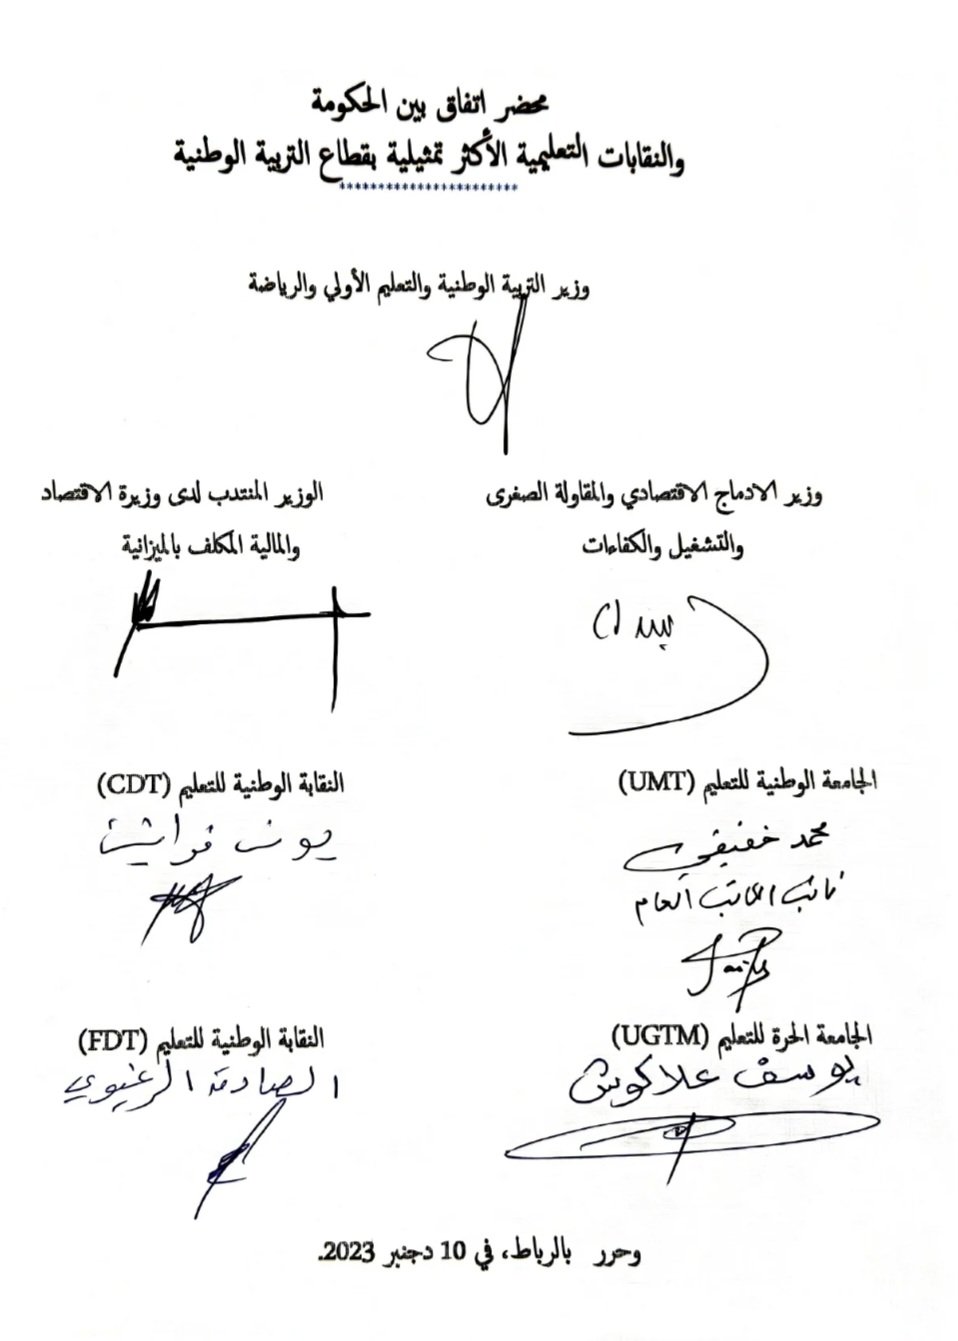 محضر اتفاق بين الحكومة
والنقابات التعليمية الأكثر تمثيلية بقطاع التربية الوطنية
************************
وزير التربية الوطنية والتعليم الأولي والرياضة
وزير الادماج الاقتصادي والمقاولة الصغرى
والتشغيل والكفاءات
الوزير المنتدب لدى وزيرة الاقتصاد
والمالية المكلف بالميزانية
الجامعة الوطنية للتعليم (UMT)
محمد خفيفي
نائب الكاتب العام
النقابة الوطنية للتعليم (CDT)
يونس فراشين
الجامعة الحرة للتعليم (UGTM)
يوسف علاكوش
النقابة الوطنية للتعليم (FDT)
الصادق الرغيوي
وحرر بالرباط، في 10 دجنبر 2023.